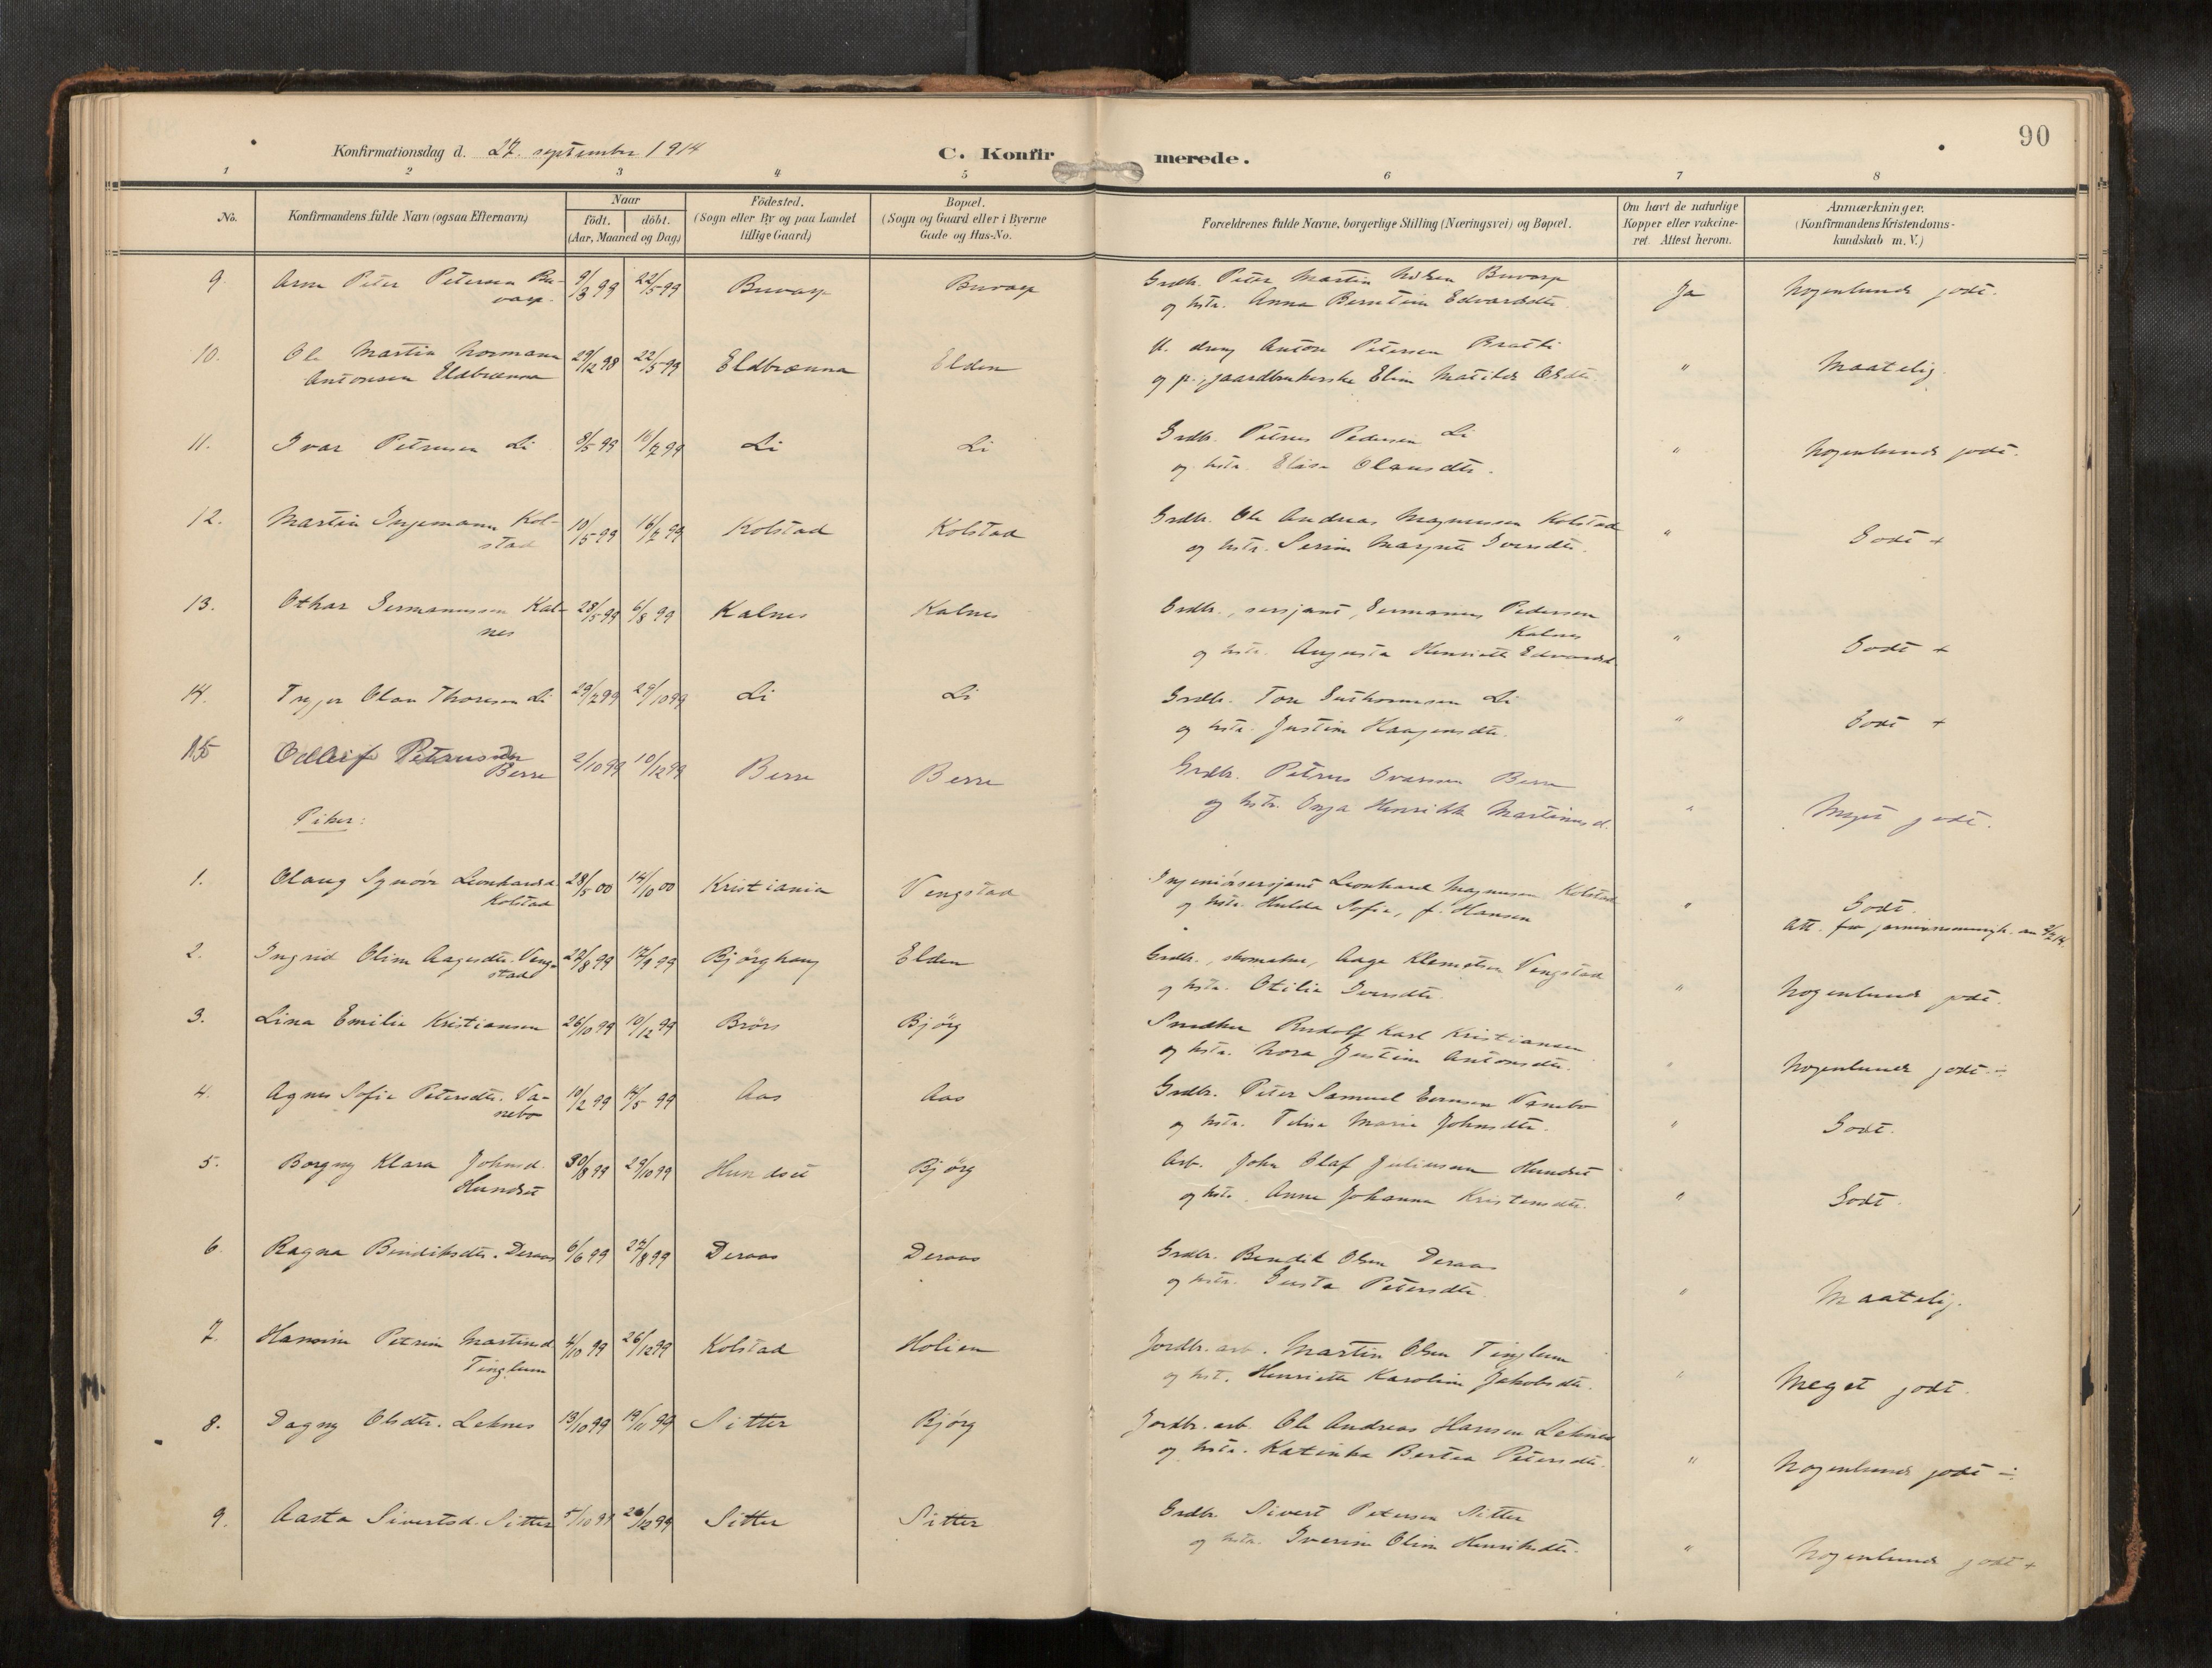 90
Konfirmationsdag d. 27. september 1914
C. Konfirmerede.
1 2 3 4 5 6 7 8
No.
Konfirmandens fulde Navn (ogsaa Efternavn)
Naar
födt. döbt.
(Aar, Maaned og Dag)
Födested.
(Sogn eller By og paa Landet
tillige Gaard)
Bopæl.
(Sogn og Gaard eller i Byerne
Gade og Hus-No.
Forældrenes fulde Navne, borgerlige Stilling (Næringsvei) og Bopæl.
Om havt de naturlige
Kopper eller vakcine-
ret. Attest herom.
Anmærkninger.
(Konfirmandens Kristendoms-
kundskab m. V.)
9. Arne Peter Petersen Bu- 9/3 99 22/5 99 Buvarp Buvarp Grdbr. Peter Martin Nilsen Buvarp Ja Nogenlunde godt.
varp. og hstr. Anna Berntine Edvardsdtr.
10. Ole Martin Normann 29/12 98 22/5 99 Eldbrænna Elden U. dreng Anton Petersen Bratli " Maatelig.
Antonsen Eldbrænna og p., gaardbrukerske Eline Matilde Olsdtr.
11. Ivar Petersen Li 8/5 99 16/7 99 Li Li Grdbr. Petrus Pedersen Li " Nogenlunde godt.
og hstr. Elise Olausdtr.
12. Martin Ingemann Kol- 10/5 99 16/7 99 Kolstad Kolstad Grdbr. Ole Andreas Magnussen Kolstad " Godt +
stad og hstr. Serine Margrete Iversdtr.
13. Othar Germanussen Kal- 28/5 99 6/8 99 Kalnes Kalnes Grdbr., sersjant, Germanus Pedersen " Godt +
nes Kalnes
og hstr. Augusta Henriette Edvardsd.
14. Trygve Olau Thoresen Li 29/7 99 29/10 99 Li Li Grdbr. Tore Guthormsen Li " Godt +
og hstr. Justine Haagensdtr.
15 Oddleif Petrussen 2/10 99 10/12 99 Berre Berre Grdbr. Petrus Ivarsen Berre " Meget godt.
Berre og hstr. Inga Henrikke Martinusd.
Piker:
1. Olaug Synöve Leonhardsd. 28/5 00 14/10 00 Kristiania Vengstad Ingeniörsersjant Leonhard Magnussen Kolstad " Godt.
Kolstad og hstr. Hulda Sofie, f. Hansen Att. fra garnisonsmenigh.
2. Ingrid Oline Aagesdtr. Veng- 22/8 99 17/9 99 Bjørghaug Elden Grdbr., skomaker, Aage Klemetsen Vengstad " Nogenlunde godt.
stad og hstr. Otilie Iversdtr.
3. Lina Emilie Kristiansen 26/10 99 10/12 99 Brörs Bjørg Snedker Rudolf Karl Kristiansen " Nogenlunde godt ÷
og hstr. Nora Justine Antonsdtr.
4. Agnes Sofie Petersdtr. Va- 10/2 99 14/5 99 Aas Aas Grdbr. Peter Samuel Evensen Vanebo " Godt.
nebo og hstr. Telise Marie Johnsdtr.
5. Borgny Klara Johnsd. 30/8 99 29/10 99 Hundset Bjørg Arb. John Olaf Juliussen Hundset " Godt.
Hundset og hstr. Anna Johanna Kristensdtr.
6. Ragna Bendiksdtr. Deraas 6/6 99 27/8 99 Deraas Deraas Grdbr. Bendik Olsen Deraas " Maatelig.
og hstr. Gusta Petersdtr.
7. Hansine Petrine Martinsd. 4/10 99 26/12 99 Kolstad Holien Jordbr. arb. Martin Olsen Tinglum " Meget godt.
Tinglum og hst. Henriette Karoline Jakobsdtr.
8. Dagny Olsdtr. Leknes 13/10 99 19/11 99 Sitter Bjørg Jordbr. arb. Ole Andreas Hansen Leknes " Nogenlunde godt ÷
og hstr. Katinka Bertea Petersdtr.
9. Aasta Sivertsd. Sitter 5/10 99 26/12 99 Sitter Sitter Grdbr. Sivert Petersen Sitter " Nogenlunde godt +
og hstr. Iverine Oline Henriksdtr.